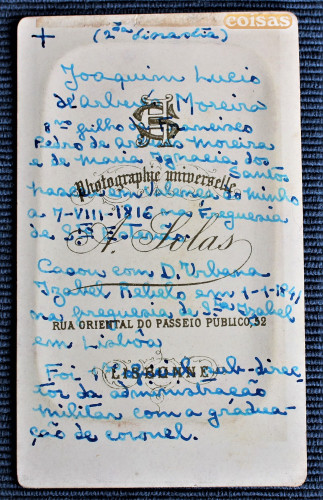 coisas
+ (2ªa dinastia)
Joaquim Lucio
d'arbués Moreira
8º filho de Francisco
Pedro de arbués Moreira
e de Maria Ignacia dos
Santos
Photographie universelle
nasceu em Valença do Minho
a 7-VIII-1816 na freguesia
de Stº Estevão.
A. Solas
Casou com D. Urbana
Izabel Rebelo em 1-1-1841
RUA ORIENTAL DO PASSEIO PUBLICO, 52
na freguesia de Stª Izabel
em Lisboa
LISBONNE
Foi sub-direc-
tor da administração
militar com a gradua-
ção de coronel.